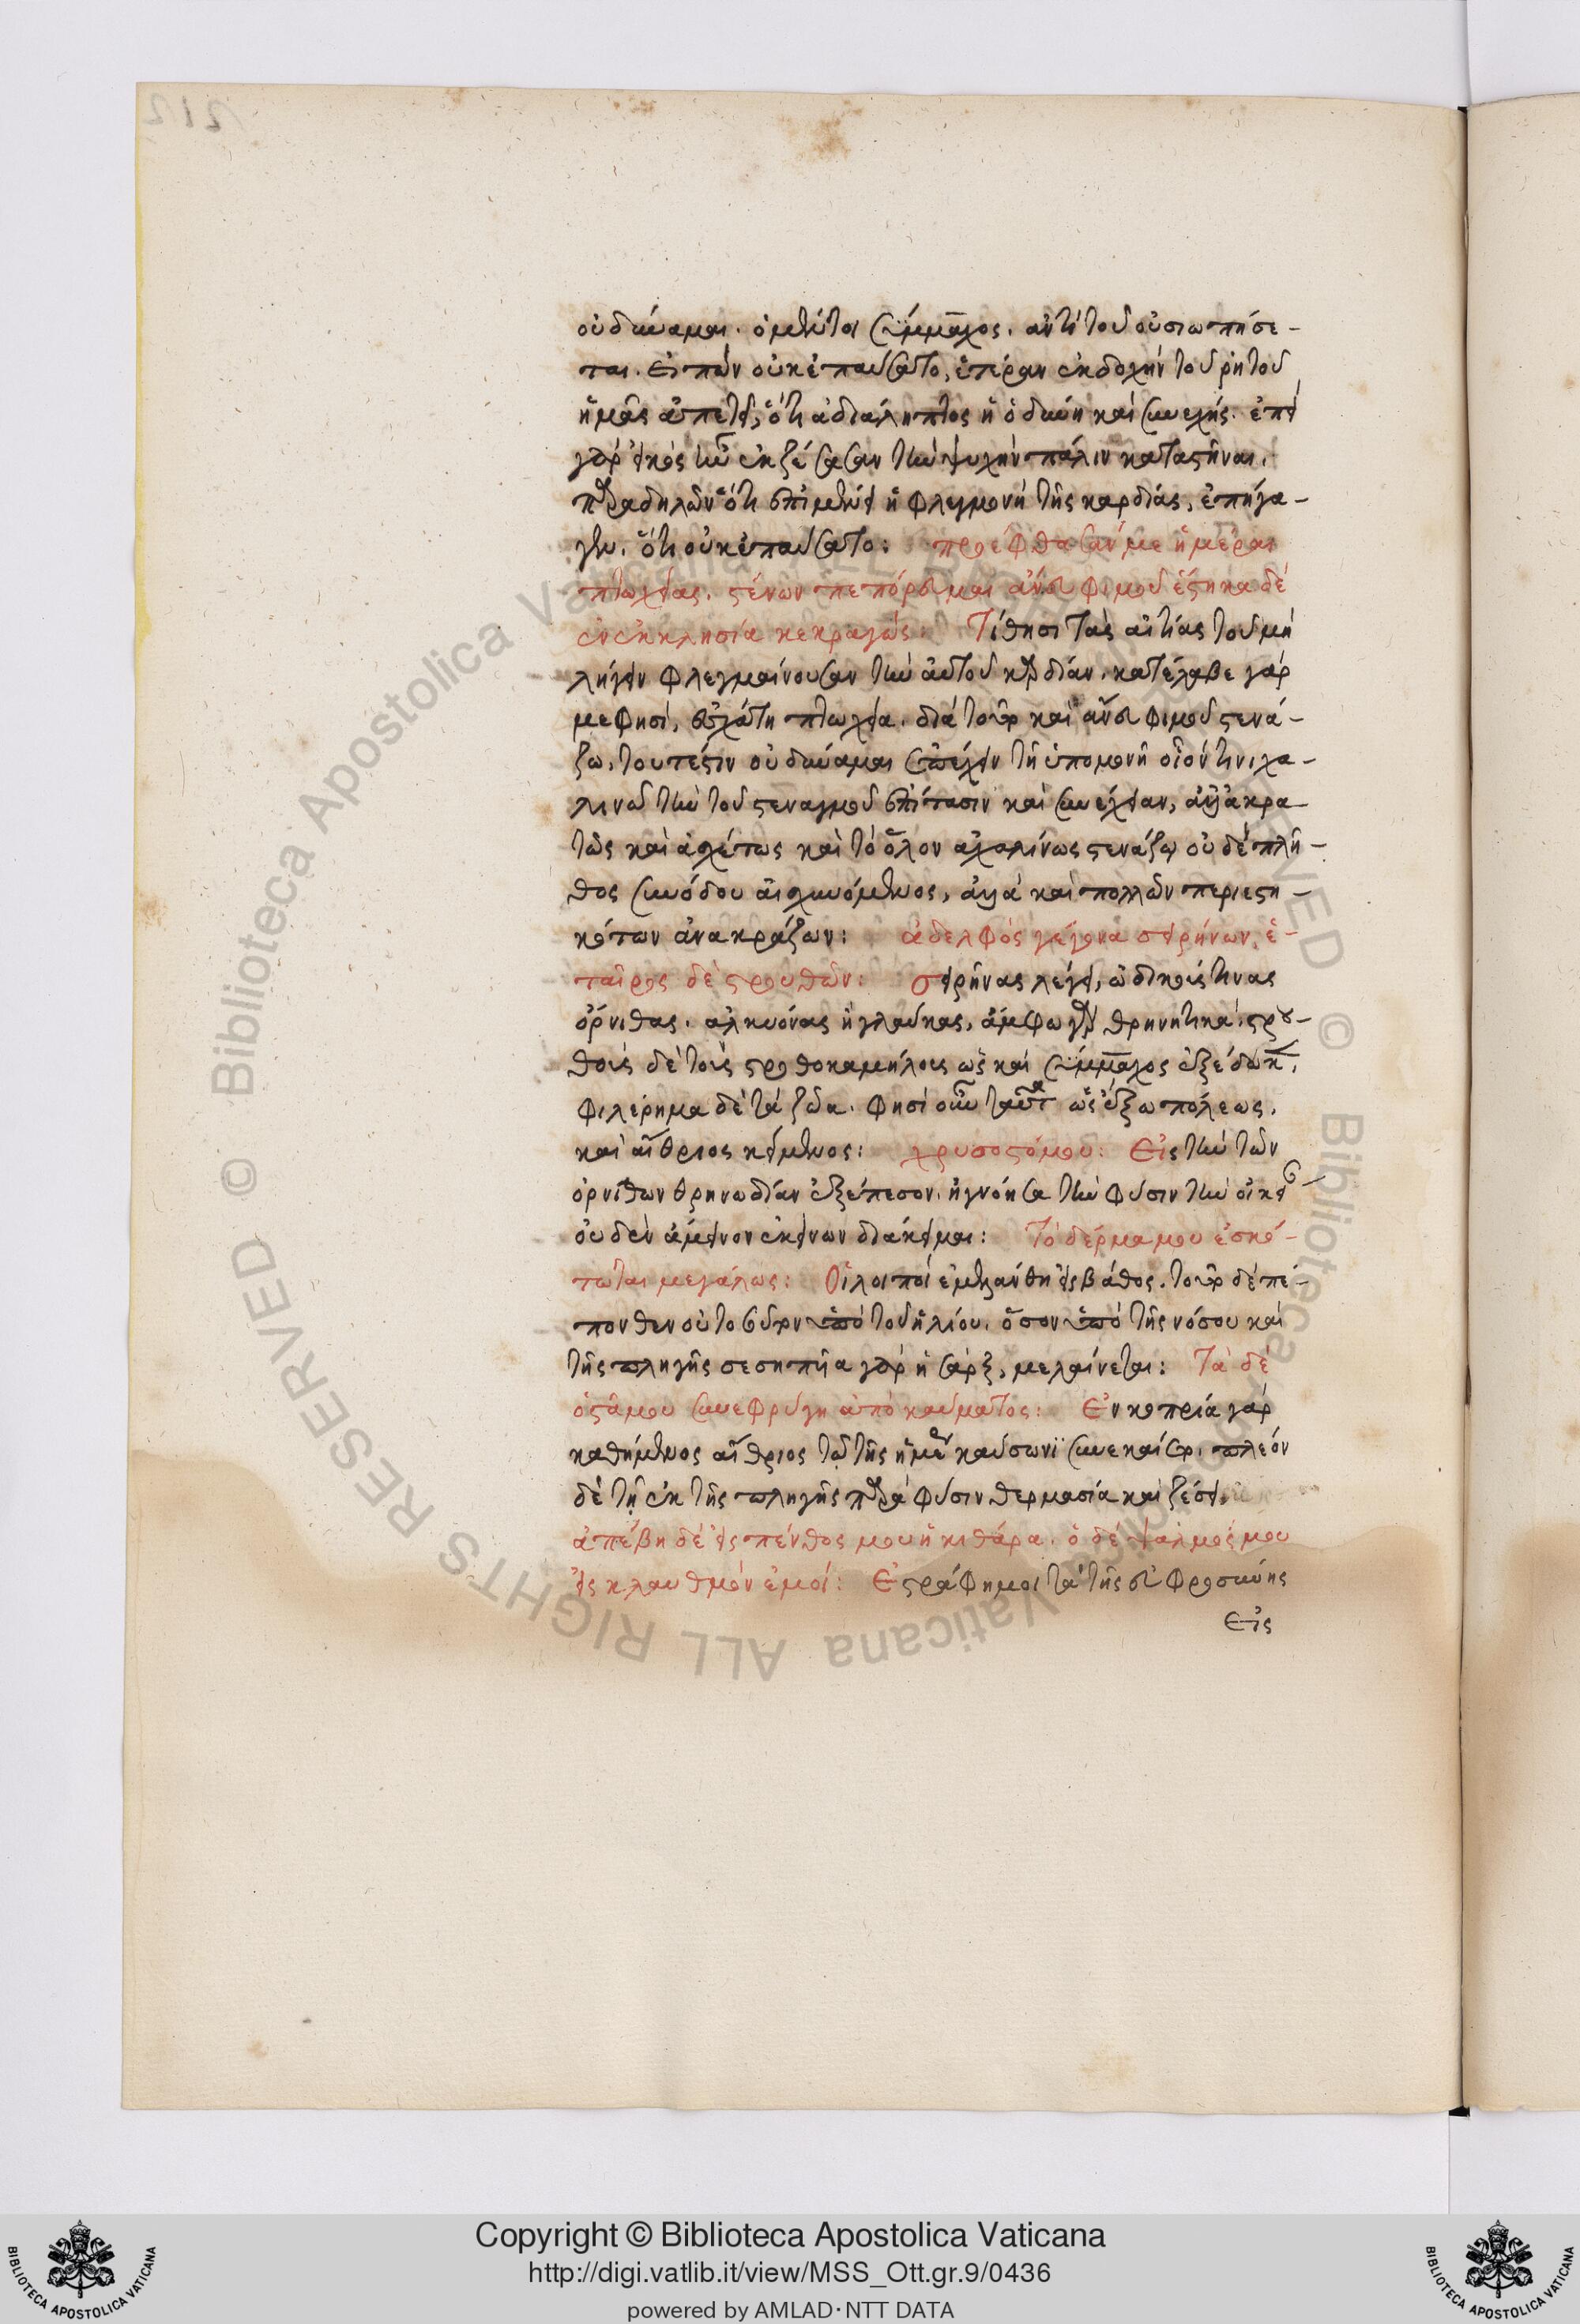 οὐ δύναμαι. ὁ μέντοι σύμμαχος, ἀντὶ τοῦ οὐ σιωπήσε-
ται. εἰπὼν οὐκ ἐπαύσατο, ἑτέραν ἐκδοχὴν τοῦ ῥητοῦ
ἡμᾶς ἀπαιτεῖ, ὅτι ἀδιάλειπτος ἡ ὀδύνη καὶ συνεχής. ἐπεὶ
γὰρ εἰκὸς ἦν ἐκζέσασαν τὴν ψυχὴν πάλιν καταστῆναι,
παραδηλῶν ὅτι ἐπιμένει ἡ φλεγμονὴ τῆς καρδίας, ἐπήγα-
γεν, ὅτι οὐκ ἐπαύσατο: προέφθασάν με ἡμέραι
πτωχείας. στένων πεπόρευμαι ἄνευ φιμοῦ ἕστηκα δὲ
ἐν ἐκκλησία κεκραγώς: Τίθησι τὰς αἰτίας τοῦ μὴ
λήγειν φλεγμαίνουσαν τὴν αὐτοῦ καρδίαν. κατέλαβε γάρ
με φησὶ, ἐσχάτη πτωχεία. διὰ τοῦτο καὶ ἄνευ φιμοῦ στενά-
ζω, τουτέστιν οὐ δύναμαι συνέχειν τῇ ὑπομονῇ οἷόν τινι χα-
λινῶ τὴν τοῦ στεναγμοῦ ἐπίτασιν καὶ συνέχειαν, ἀλλ' ἀκρα-
τῶς καὶ ἀσχέτως καὶ τὸ ὅλον ἀχαλινως στενάζω οὐδὲ πλῆ-
θος συνόδου αἰσχυνόμενος, ἀλλὰ καὶ πολλῶν περιεστη-
κότων ἀνακράζων: ἀδελφὸς γέγονα σειρήνων, ἑ-
ταῖρος δὲ στρουθῶν: σειρῆνας λέγει, ὠδικούς τινας
ὄρνιθας. ἀλκυόνας ἢ γλαύκας, ἄμφω γὰρ θρηνητικά. στρου-
θοὺς δὲ τοὺς στρουθοκαμήλους ὡς καὶ σύμμαχος ἐξέδωκεν,
φιλέρημα δὲ τὰ ζῶα. φησὶ οὖν ταῦτα ὡς ἔξω πόλεως,
καὶ αἴθριος κείμενος: χρυσοστόμου: Εἰς τὴν τῶν
ὀρνίθων θρηνωδίαν ἐξέπεσον. ἠγνόησα τὴν φύσιν τὴν οἰκεί
οὐδὲν ἄμεινον ἐκείνων διάκειμαι: Τὸ δέρμα μου ἐσκό-
τωται μεγάλως: Οἱ λοιποὶ ἐμελάνθη εἰς βάθος. τοῦτο δὲ πέ-
πονθεν οὐ τοσοῦτον ὑπὸ τοῦ ἡλίου, ὅσον ὑπὸ τῆς νόσου καὶ
τῆς πληγῆς σεσηπῆα γὰρ ἡ σὰρξ, μελαίνεται: Τὰ δὲ
ὀστᾶ μου συνεφρύγη ἀπὸ καύματος: Ἐν κοπρία γὰρ
καθήμενος αἴθριος τῷ τῆς ἡμέρας καύσωνϊ συνεκαίετο, πλέον
δὲ τῇ ἐκ τῆς πληγῆς παρὰ φύσιν θερμασία καὶ ζέσει.
ἀπέβη δὲ εἰς πένθος μου ἡ κιθάρα. ὁ δὲ ψαλμός μου
εἰς κλαυθμὸν ἐμοί: Ἐστράφη μοι τὰ τῆς εὐφροσύνης
εἰς
Copyright © Biblioteca Apostolica Vaticana
http://digi.vatlib.it/view/MSS_Ott.gr.9/0436
powered by AMLAD·NTT DATA
BIBLIOTECA APOSTOLICA VATICANA
BIBLIOTECA APOSTOLICA VATICANA
© Biblioteca Apostolica Vaticana ALL RIGHTS RESERVED
© Biblioteca Apostolica Vaticana ALL RIGHTS RESERVED